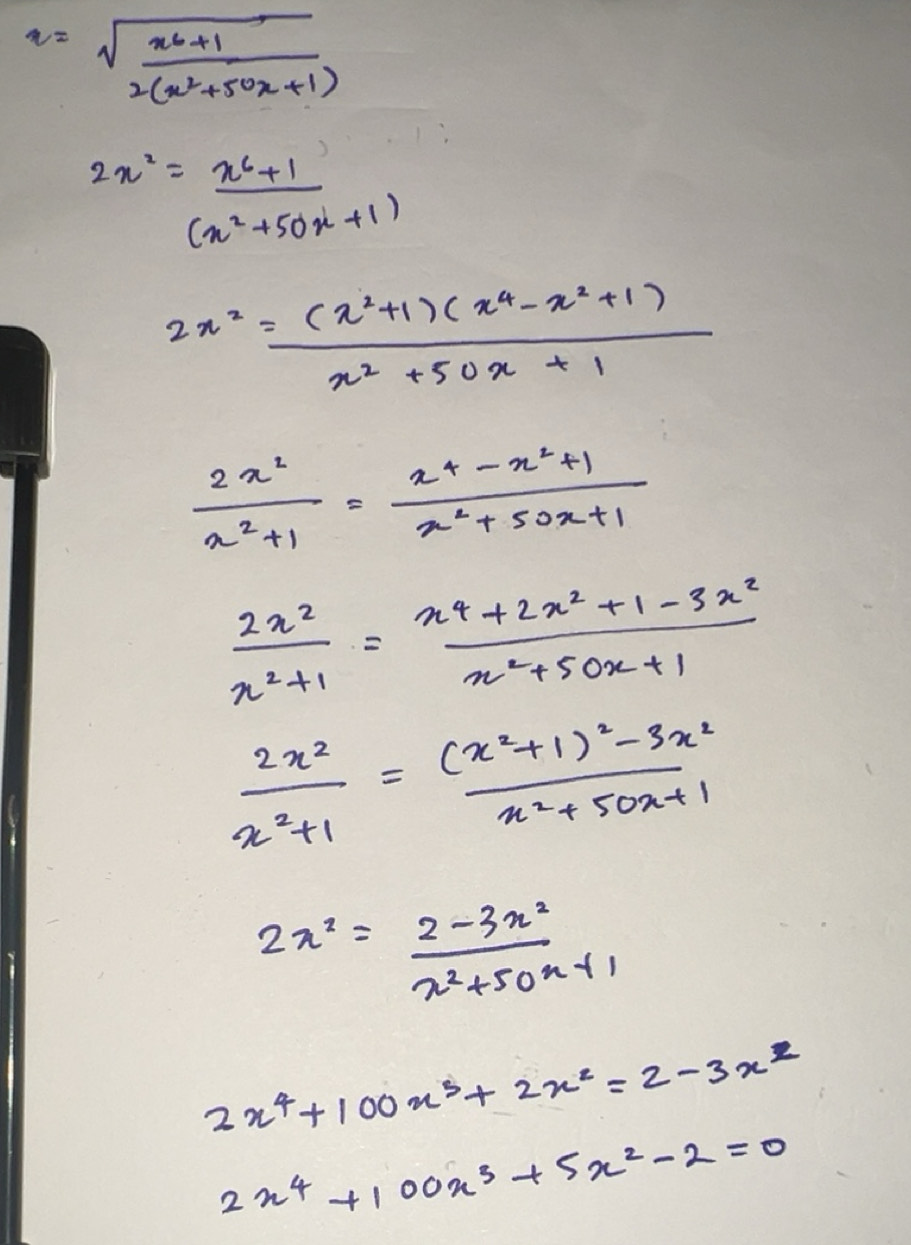 x = √((x⁶+1)/(2(x²+50x+1)))
2x² = (x⁶+1)/((x²+50x+1))
2x² = ((x²+1)(x⁴-x²+1))/(x²+50x+1)
(2x²)/(x²+1) = (x⁴-x²+1)/(x²+50x+1)
(2x²)/(x²+1) = (x⁴+2x²+1-3x²)/(x²+50x+1)
(2x²)/(x²+1) = ((x²+1)²-3x²)/(x²+50x+1)
2x² = (2-3x²)/(x²+50x+1)
2x⁴+100x³+2x²=2-3x²
2x⁴+100x³+5x²-2=0